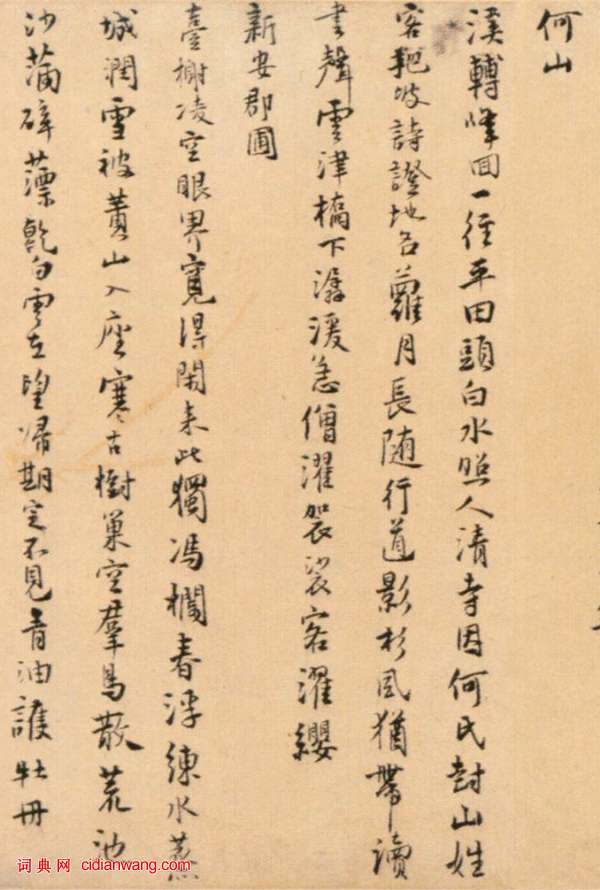 何山
溪轉峰回一徑平田頭白水照人清寺因何氏封山姓
客把坡詩證地名蘿月長隨行道影杉風猶帶讀
書聲雲津橋下潺湲急僧濯袈裟客濯纓
新安郡圃
臺榭凌空眼界寬得閑來此獨馮欄春浮練水蕪
城潤雪被黃山入座寒古樹巢空羣鳥散荒池
沙滿碎薸乾白雲在望歸期定不見青油護牡丹
词典网 cidianwang.com